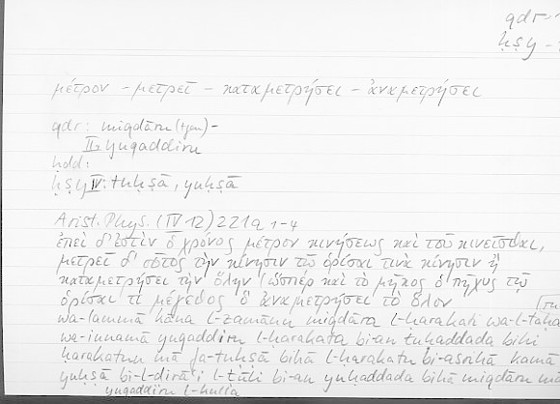 qdr-
ḥṣy -
μέτρον - μετρεῖ - καταμετρήσει - ἀναμετρήσει
qdr: miqdāru (tyan) -
II: yuqaddiru
ḥdd:
ḥṣy IV: tuḥṣā, yuḥṣā
Arist. Phys. (IV 12) 221a 1-4
ἐπεὶ δ' ἐστὶν ὁ χρόνος μέτρον κινήσεως καὶ τοῦ κινεῖσθαι,
μετρεῖ δ' οὗτος τὴν κίνησιν τῷ ὁρίσαι τινὰ κίνησιν ἣ
καταμετρήσει τὴν ὅλην (ὥσπερ καὶ τὸ μῆκος ὁ πῆχυς τῷ
ὁρίσαι τι μέγεθος ὃ ἀναμετρήσει τὸ ὅλον
wa-lammā kāna l-zamānu miqdāra l-ḥarakati wa-l-taḥa
wa-innamā yuqaddiru l-ḥarakata bi-an tuḥaddada bihi
ḥarakatun mā fa-tuḥṣā bihā l-ḥarakatu bi-asrihā kamā
yuḥṣā bi-l-dirāʿi l-ṭūlu bi-an yuḥaddada bihā miqdāru mā
yuqaddiru l-kulla